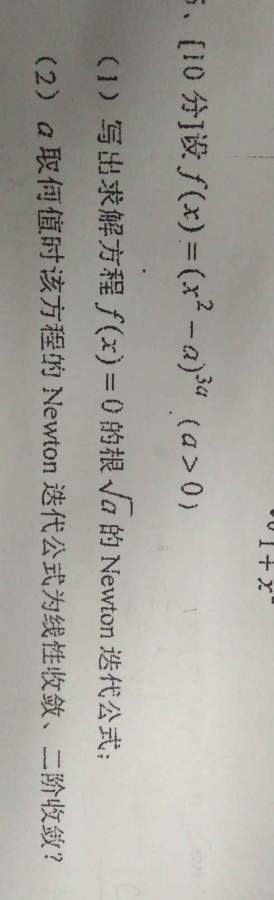 、[10 分]设 f(x)=(x² − a)³ᵃ (a>0)
(1) 写出求解方程 f(x)=0 的根 √a 的 Newton 迭代公式;
(2) a 取何值时该方程的 Newton 迭代公式为线性收敛、二阶收敛?
1+x